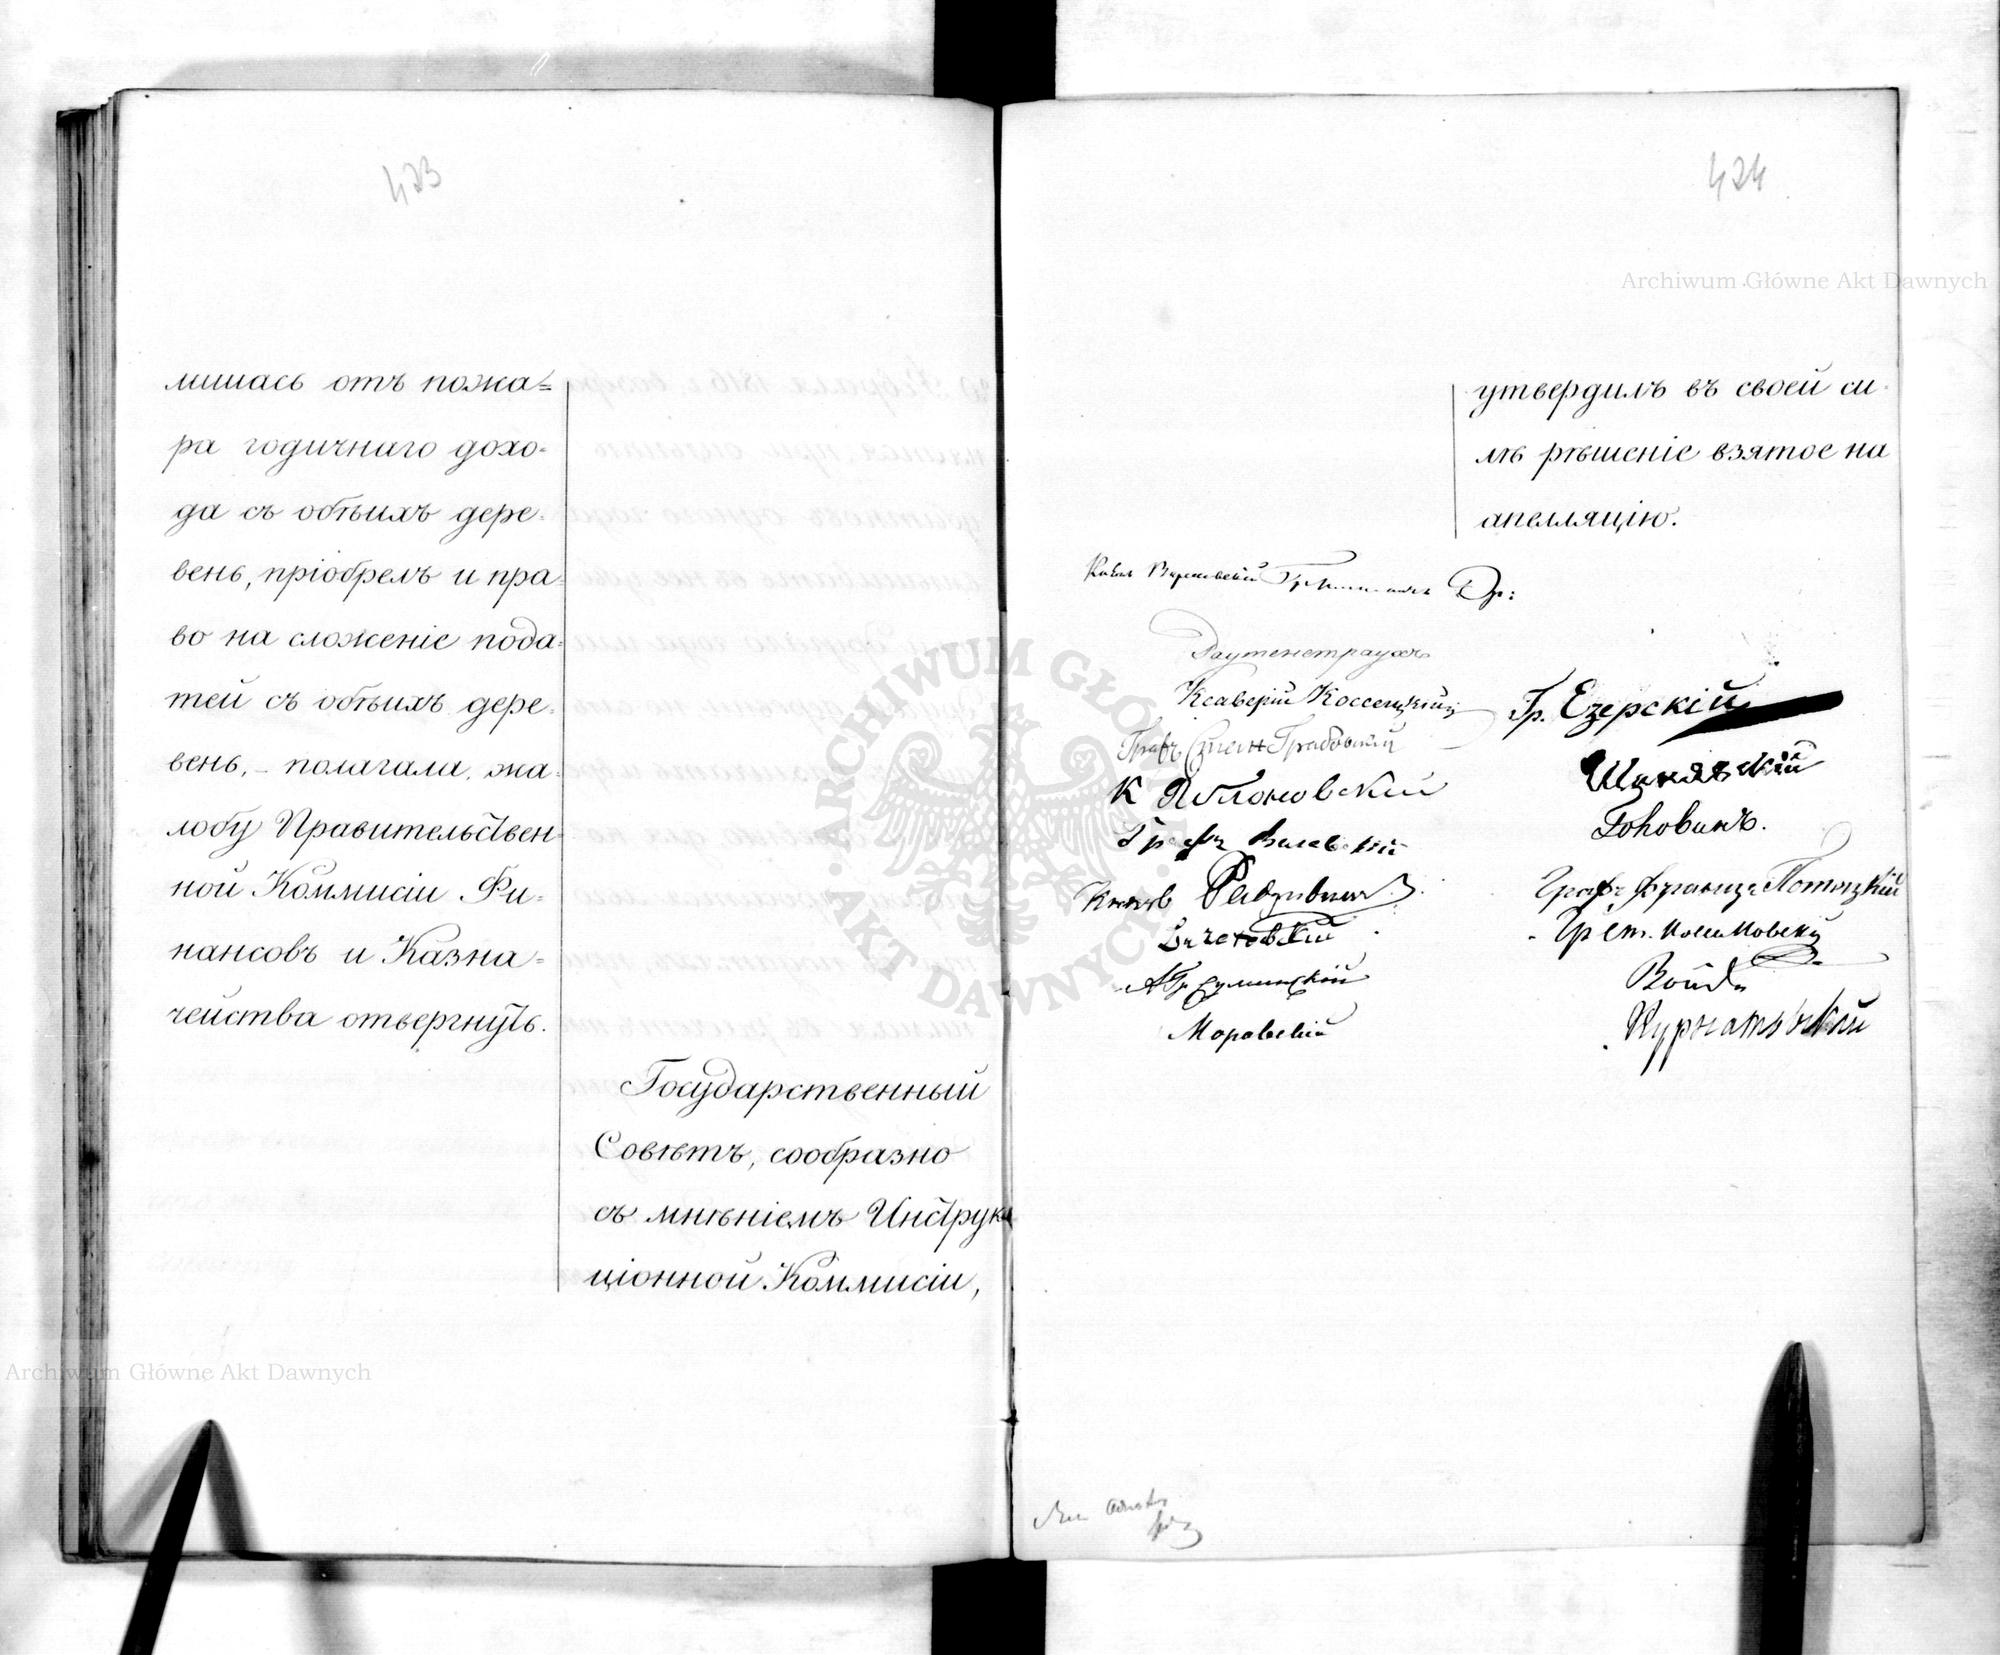 423
лишась отъ пожа=
ра годичнаго дохо=
да съ обѣихъ дере=
вень, пріобрелъ и пра=
во на сложеніе пода=
тей съ обѣихъ дере=
вень, – полагала, жа=
лобу Правительствен=
ной Коммисіи Фи=
нансовъ и Казна=
чейства отвергнуть.
Государственный
Совѣтъ, сообразно
съ мнѣніемъ Инструк
ціонной Коммисіи,
424
утвердилъ въ своей си=
лѣ рѣшеніе взятое на
апелляцію.
Раутенстраухъ
Ксаверій Коссецкій
Графъ Грабовскій
К Яблоновскій
Графъ
Князь
Моравскій
Гр. Езерскій
Шанявскій
Головинъ.
Графъ Францъ Потоцкій
Курнатовскій
Archiwum Główne Akt Dawnych
Archiwum Główne Akt Dawnych
ARCHIWUM GŁÓWNE AKT DAWNYCH